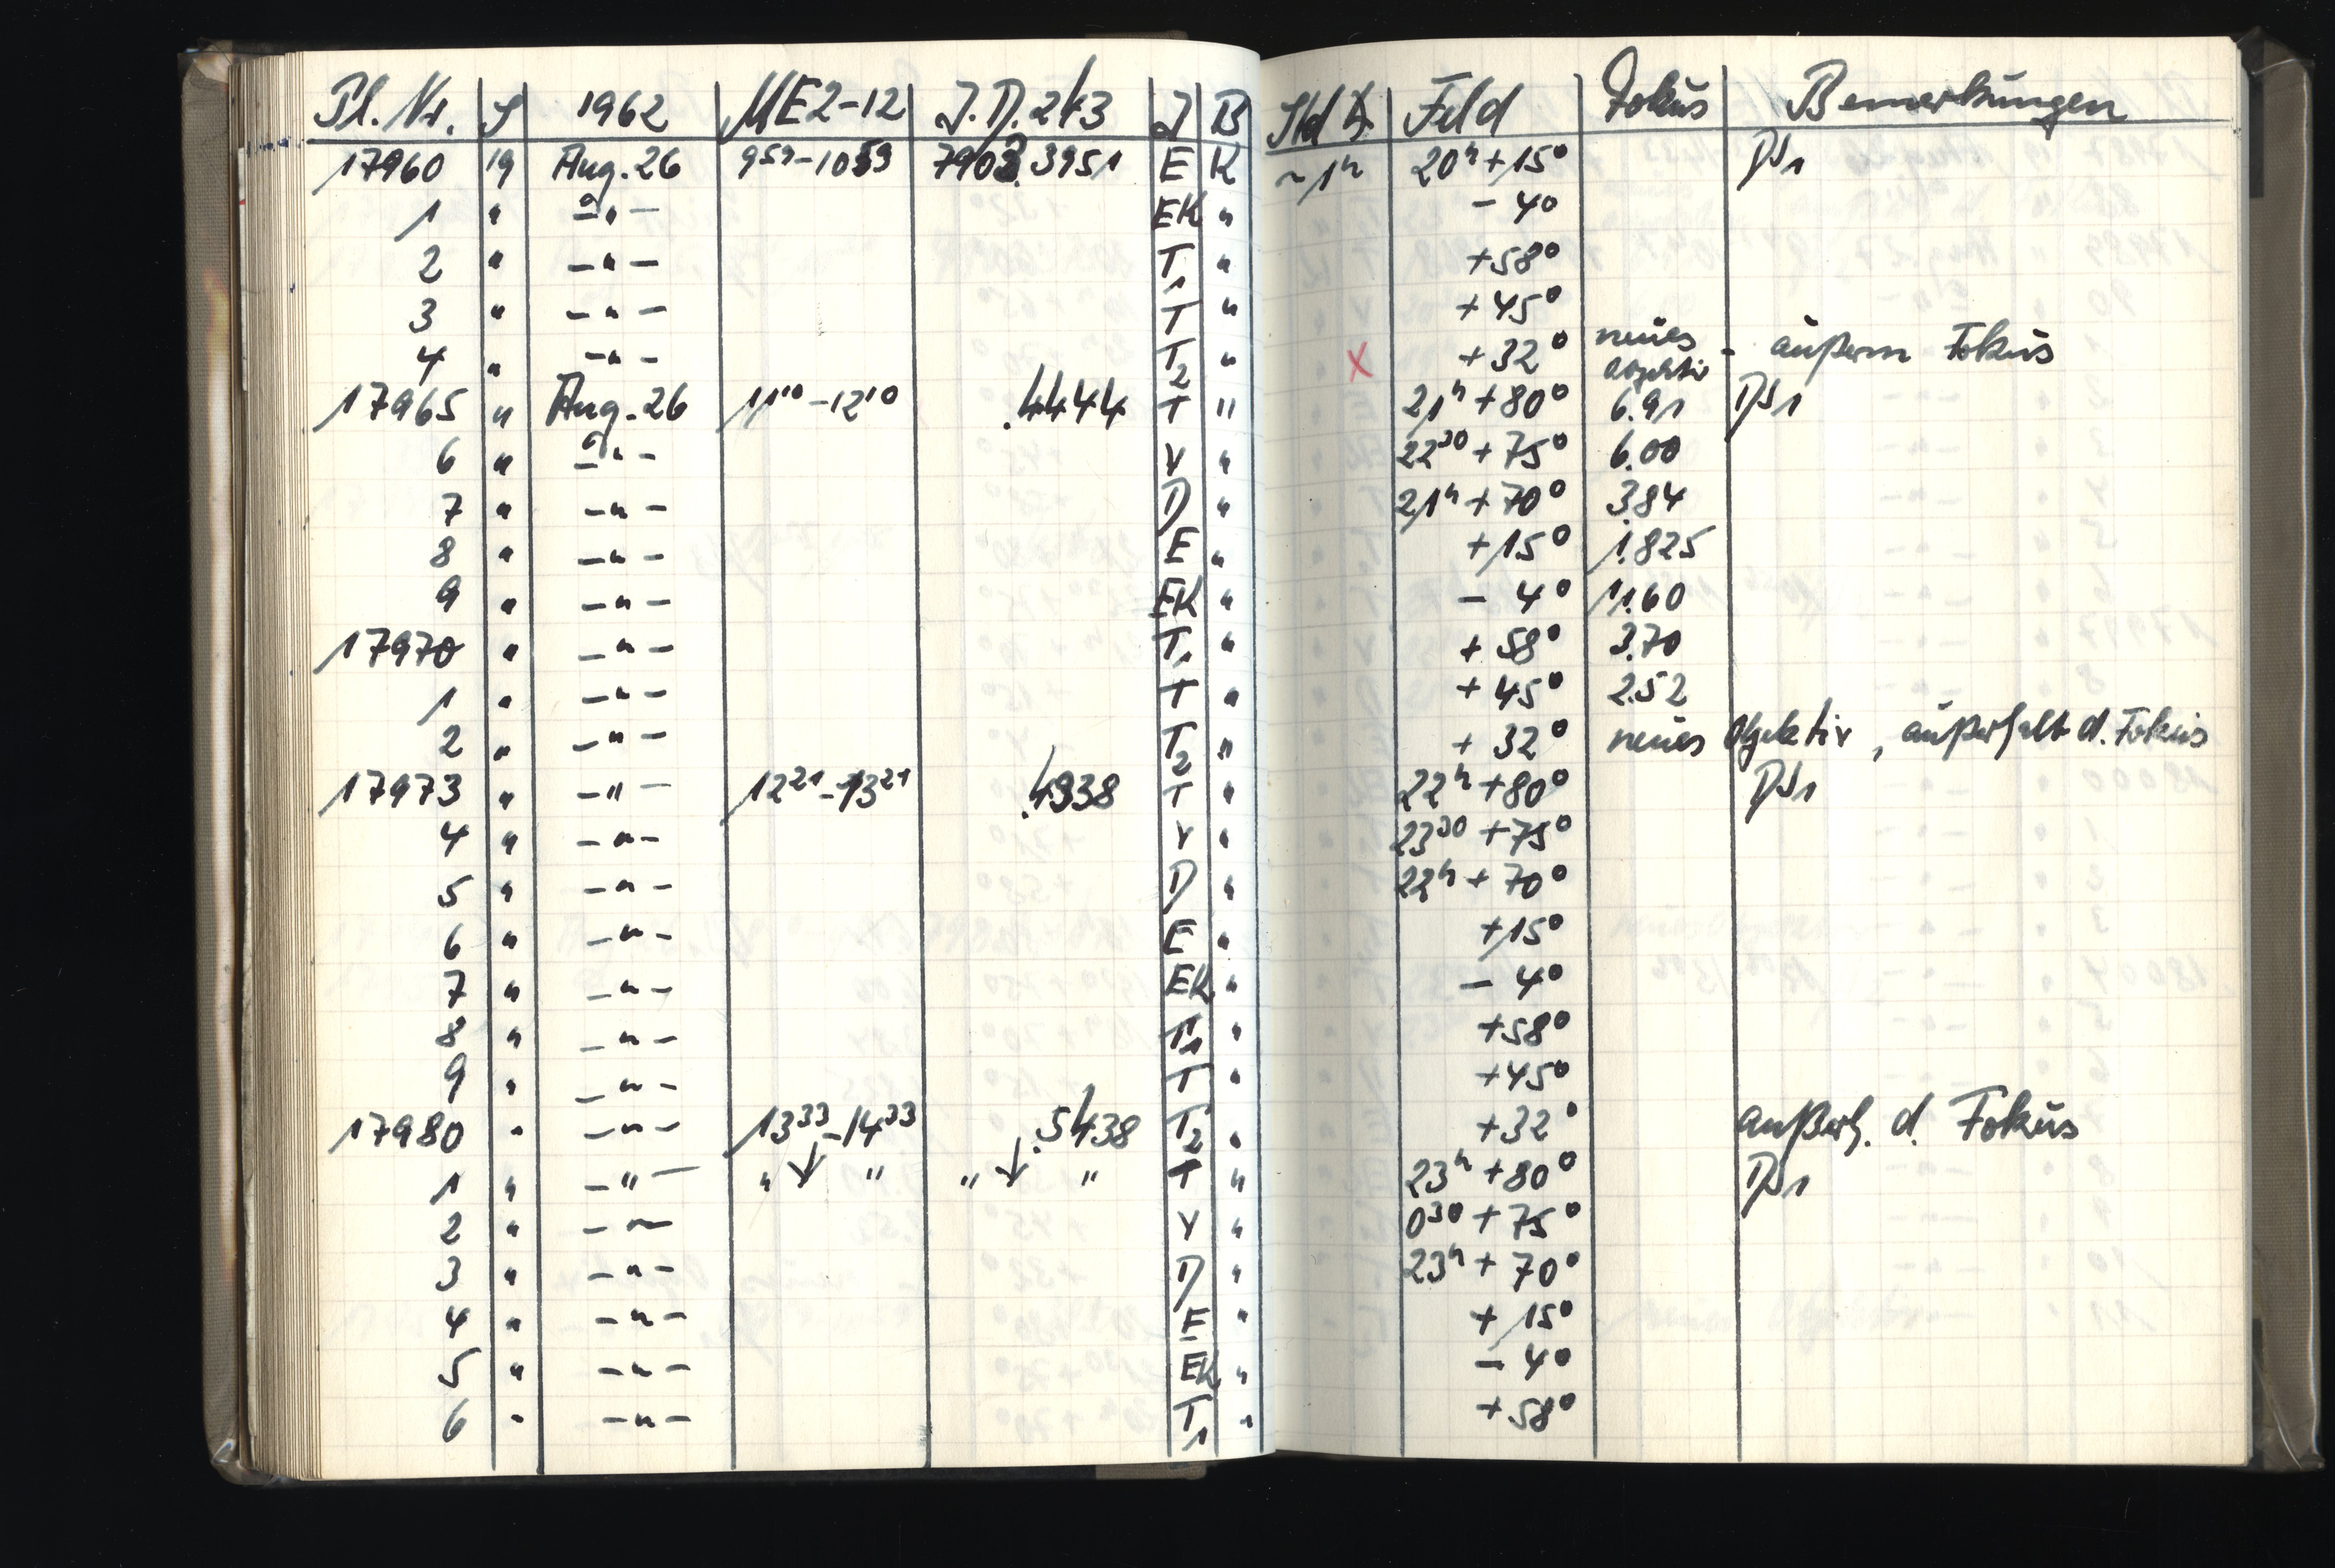 Pl. Nr. S 1962 ME2-12 J.D. 243 I B Std ∢ Feld Fokus Bemerkungen
17960 19 Aug. 26 9⁵⁹-10⁵⁹ 7903.3951 E K ~1ʰ 20ʰ+15° PS1
1 " -"- EK " - 4°
2 " -"- T1 " +58°
3 " -"- T " +45°
4 " -"- T2 " x +32° neues Objektiv - außerm Fokus
17965 " Aug. 26 11¹⁰-12¹⁰ .4444 T " 21ʰ+80° 6.91 PS1
6 " -"- V " 22³⁰+75° 6.00
7 " -"- D " 21ʰ+70° 3.84
8 " -"- E " +15° 1.825
9 " -"- EK " - 4° 11.60
17970 " -"- T1 " +58° 3.70
1 " -"- T " +45° 2.52
2 " -"- T2 " +32° neues Objektiv, außerhalb d. Fokus
17973 " -"- 12²¹-13²¹ .4938 T " 22ʰ+80° PS1
4 " -"- V " 23³⁰+75°
5 " -"- D " 22ʰ+70°
6 " -"- E " +15°
7 " -"- EK " - 4°
8 " -"- T1 " +58°
9 " -"- T " +45°
17980 " -"- 13³³-14³³ .5438 T2 " +32° außerh. d. Fokus
1 " -"- " ↓ " " ↓ " T " 23ʰ+80° PS1
2 " -"- V " 0³⁰+75°
3 " -"- D " 23ʰ+70°
4 " -"- E " +15°
5 " -"- EK " - 4°
6 " -"- T1 " +58°